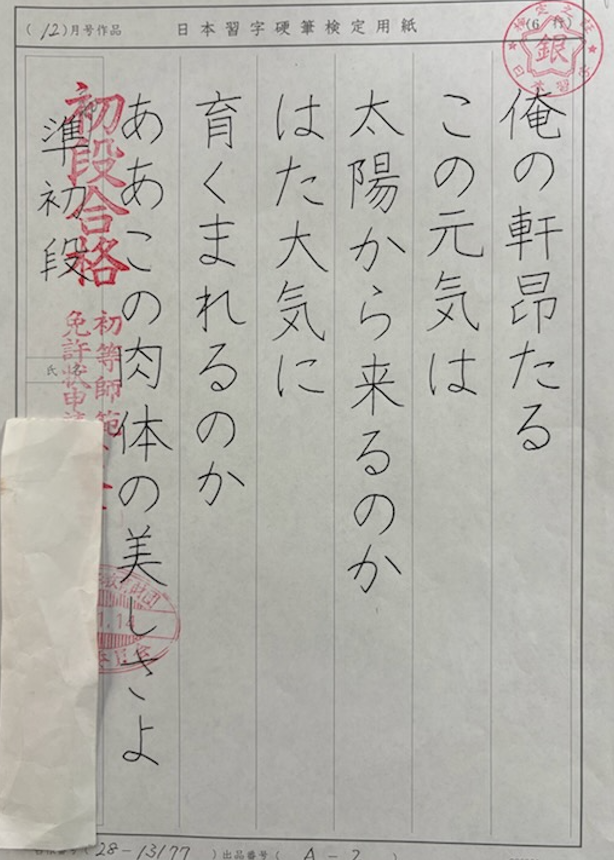 (12)月号作品
日本習字硬筆検定用紙
(6行)
銀
俺の軒昂たる
この元気は
太陽から来るのか
はた大気に
育くまれるのか
ああこの肉体の美しさよ
初段合格
準初段
初等師範
免許状申
氏名
財団
1.14
28-13177
)出品番号( A-2 )